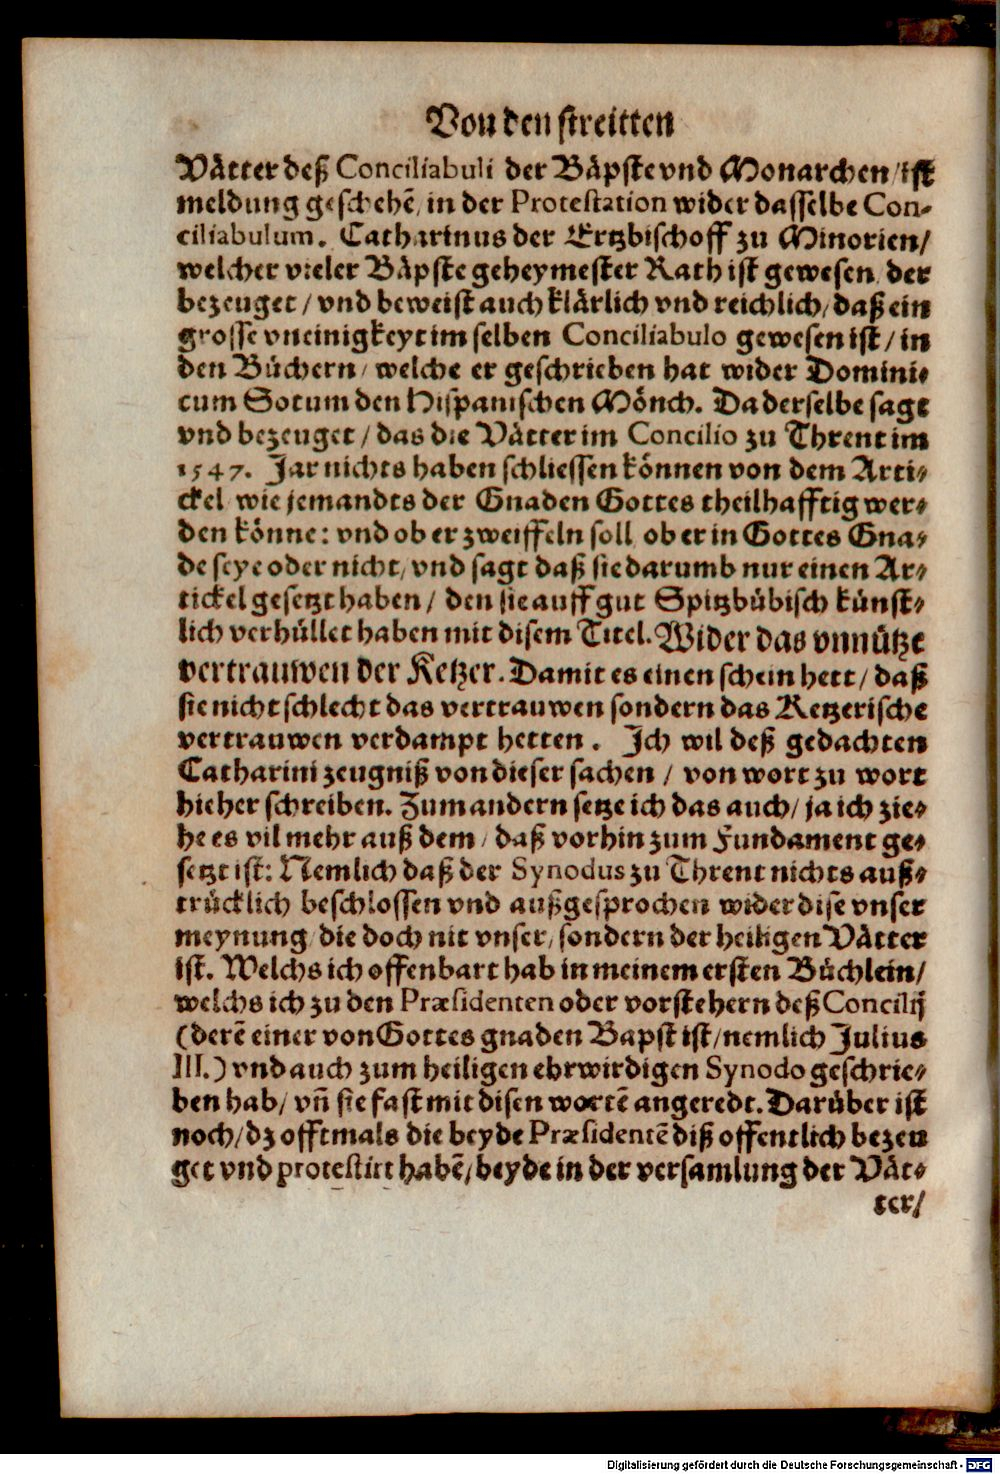 Von den streitten
Vätter deß Conciliabuli der Bäpste vnd Monarchen / ist
meldung geschehẽ / in der Protestation wider dasselbe Con-
ciliabulum. Catharinus der Ertzbischoff zu Minorien /
welcher vieler Bäpste geheymester Rath ist gewesen / der
bezeuget / vnd beweist auch klärlich vnd reichlich / daß ein
grosse vneinigkeyt im selben Conciliabulo gewesen ist / in
den Büchern / welche er geschrieben hat wider Domini-
cum Sotum den Hispanischen Mönch. Da derselbe sagt
vnd bezeuget / das die Vätter im Concilio zu Thrent im
1547. Jar nichts haben schliessen können von dem Arti-
ckel wie jemandts der Gnaden Gottes theilhafftig wer-
den könne: vnd ob er zweiffeln soll ob er in Gottes Gna-
de seye oder nicht / vnd sagt daß sie darumb nur einen Ar-
tickel gesetzt haben / den sie auff gut Spitzbübisch künst-
lich verhüllet haben mit disem Titel. Wider das vnnütze
vertrauwen der Ketzer. Damit es einen schein hett / daß
sie nicht schlecht das vertrauwen sondern das Ketzerische
vertrauwen verdampt hetten. Ich wil deß gedachten
Catharini zeugniß von dieser sachen / von wort zu wort
hieher schreiben. Zum andern setze ich das auch / ja ich zie-
he es vil mehr auß dem / daß vorhin zum Fundament ge-
setzt ist: Nemlich daß der Synodus zu Thrent nichts auß-
trücklich beschlossen vnd außgesprochen wider dise vnser
meynung / die doch nit vnser / sondern der heiligen Vätter
ist. Welchs ich offenbart hab in meinem ersten Büchlein /
welchs ich zu den Præsidenten oder vorstehern deß Concilij
(derẽ einer von Gottes gnaden Bapst ist / nemlich Julius
III.) vnd auch zum heiligen ehrwirdigen Synodo geschrie-
ben hab / vñ sie fast mit disen wortẽ angeredt. Darüber ist
noch / dz offtmals die beyde Præsidentẽ diß offentlich bezeu
get vnd protestirt habẽ / beyde in der versamlung der Vät-
ter /
Digitalisierung gefördert durch die Deutsche Forschungsgemeinschaft - DFG